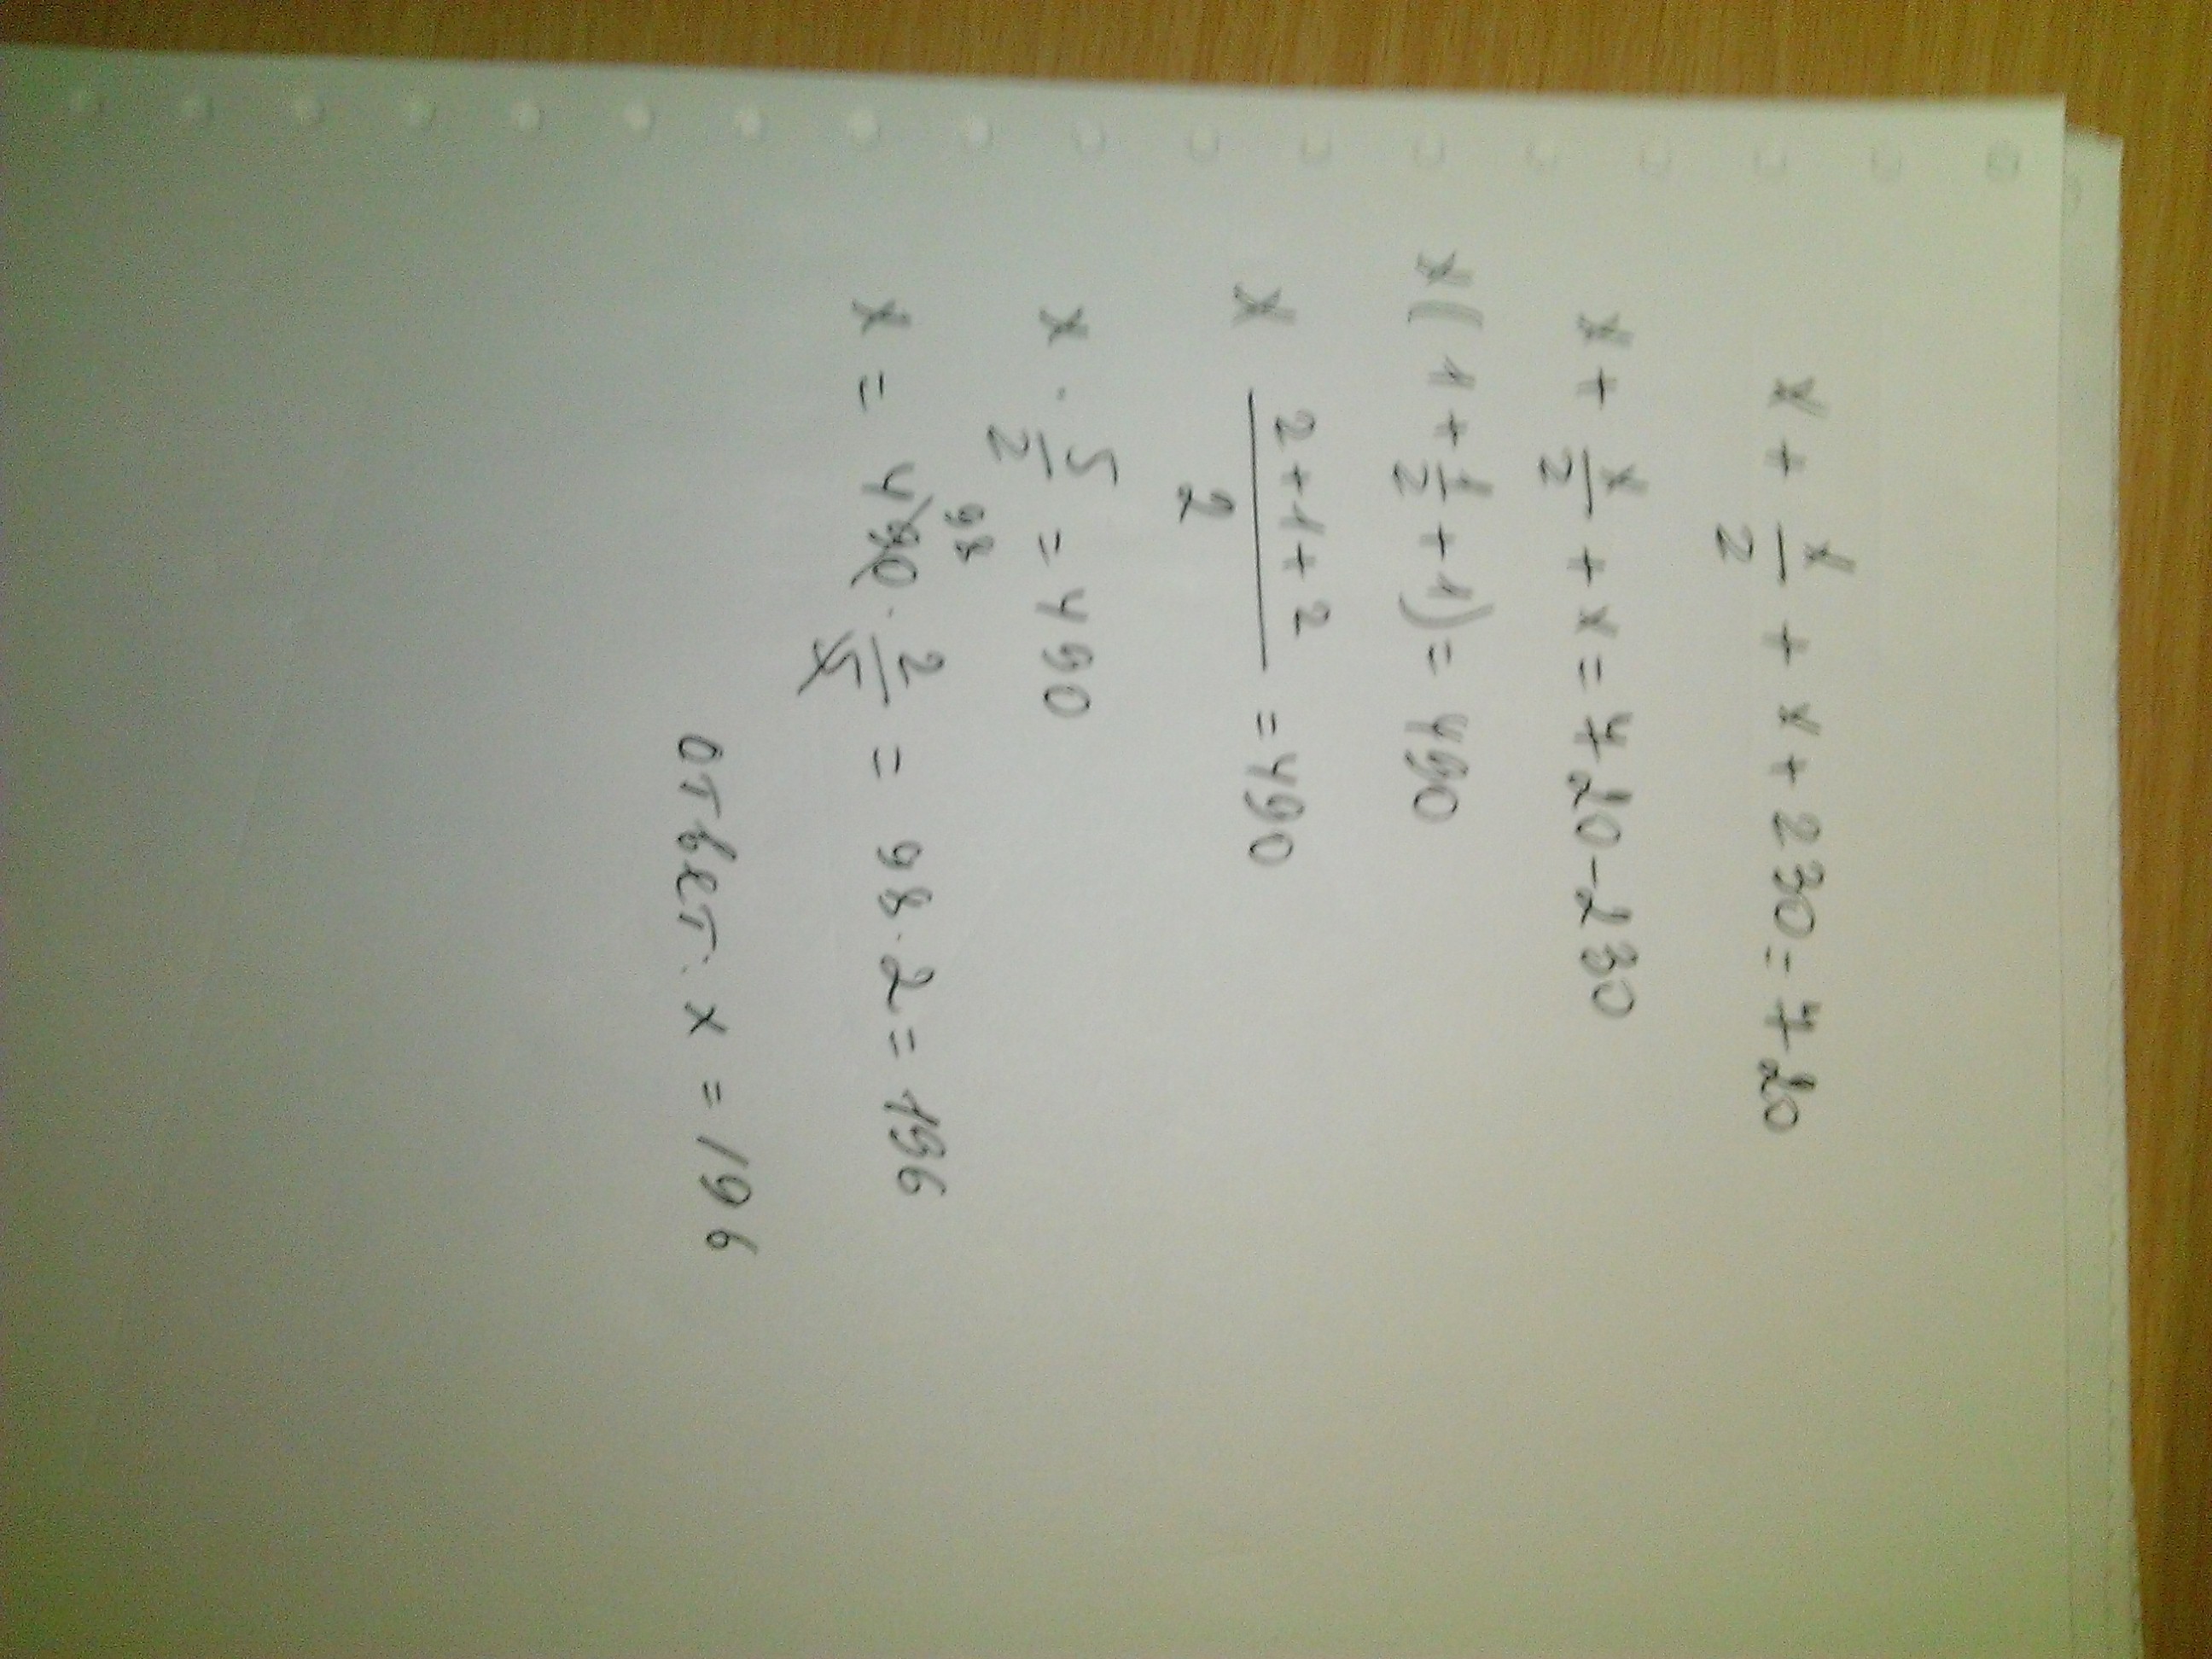 x + x/2 + x + 230 = 720
x + x/2 + x = 720 - 230
x(1 + 1/2 + 1) = 490
x (2+1+2)/2 = 490
x · 5/2 = 490
98
x = 490 · 2/5 = 98 · 2 = 196
Ответ: x = 196